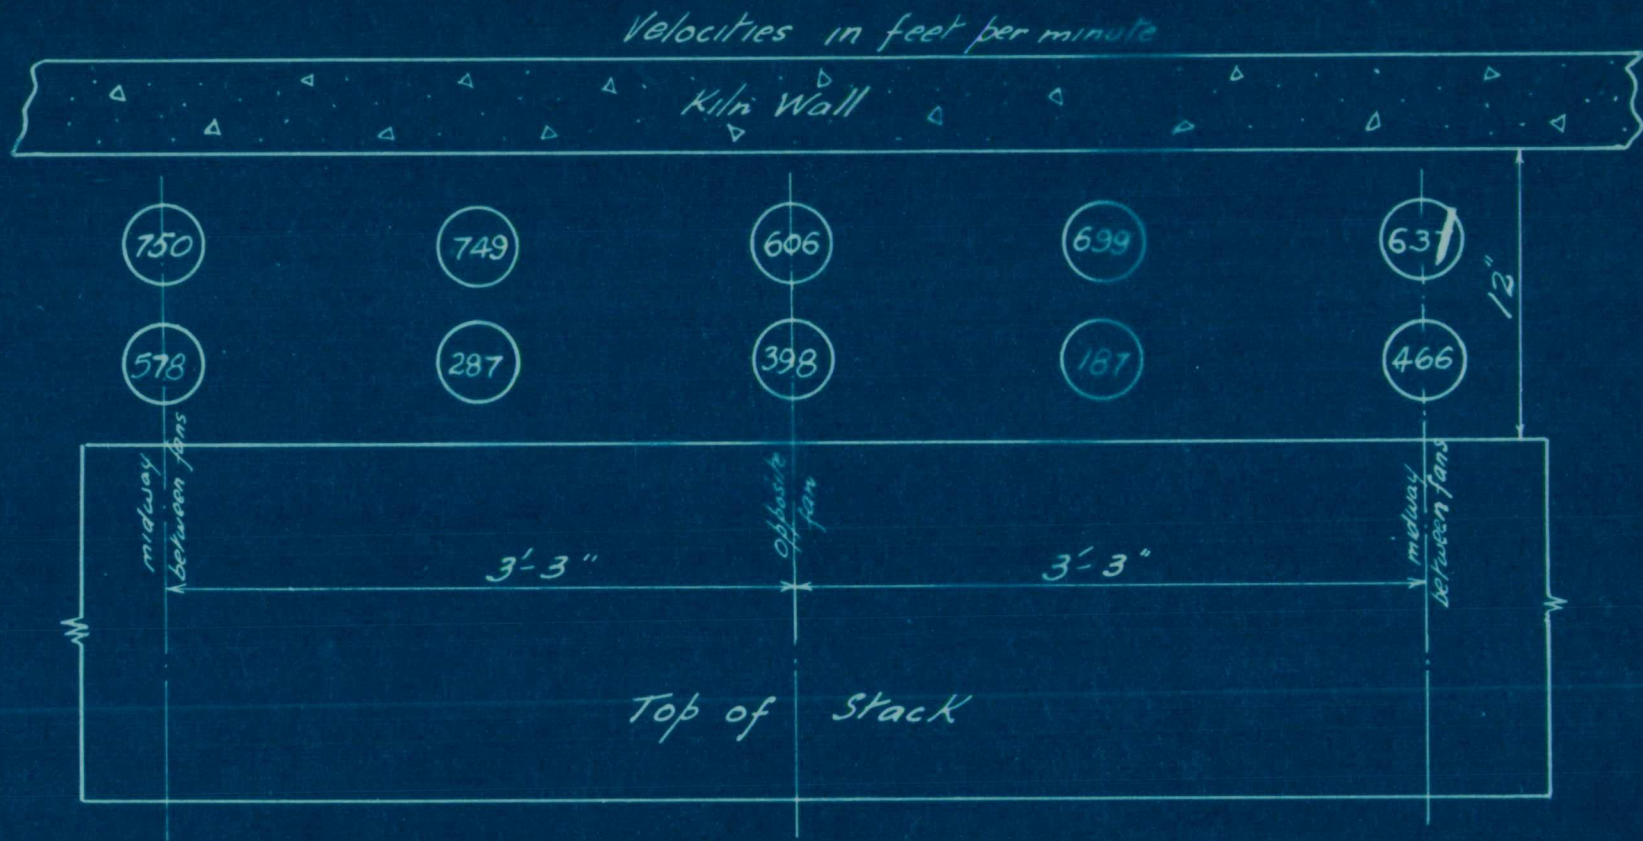 Velocities in feet per minute
Kiln Wall
750 749 606 699 637
578 287 398 187 466
12"
midway
between fans
opposite
fan
midway
between fans
3'-3" 3'-3"
Top of Stack